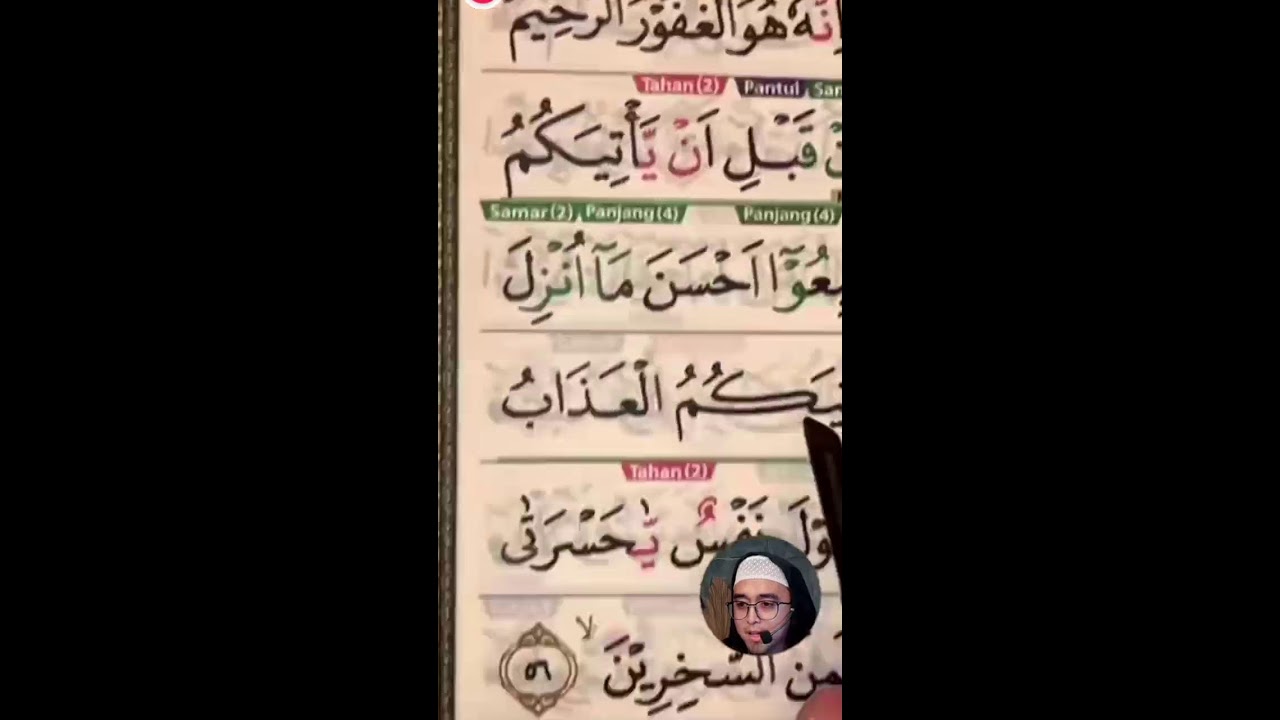 اِنَّهٗ هُوَ الْغَفُوْرُ الرَّحِيْمُ
Tahan (2) Pantul Sam
قَبْلِ اَنْ يَّأْتِيَكُمُ
Samar (2) Panjang (4) Panjang (4)
بِعُوْٓا اَحْسَنَ مَآ اُنْزِلَ
يَكُمُ الْعَذَابُ
Tahan (2)
وْلَ نَفْسٌ يّٰحَسْرَتٰى
لَمِنَ السّٰخِرِيْنَۙ ٥٦